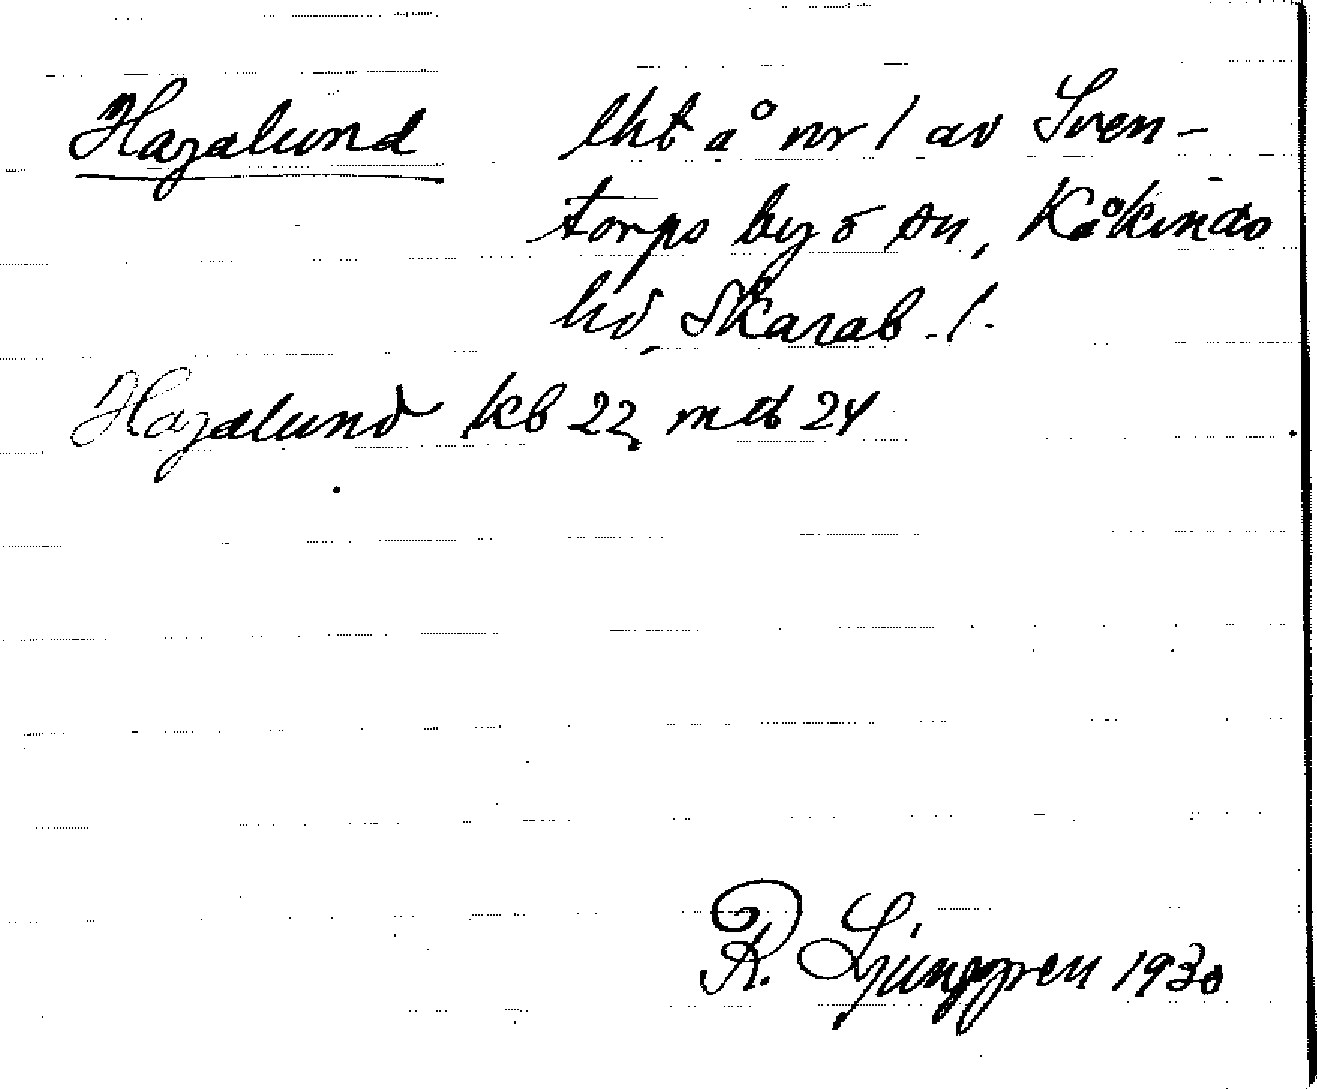 Hagalund lht å nr 1 av Sven-
torps by o sn, Kåkinds
hd, Skarab. l.
Hagalund kb 22, mtb 24
R. Ljunggren 1930